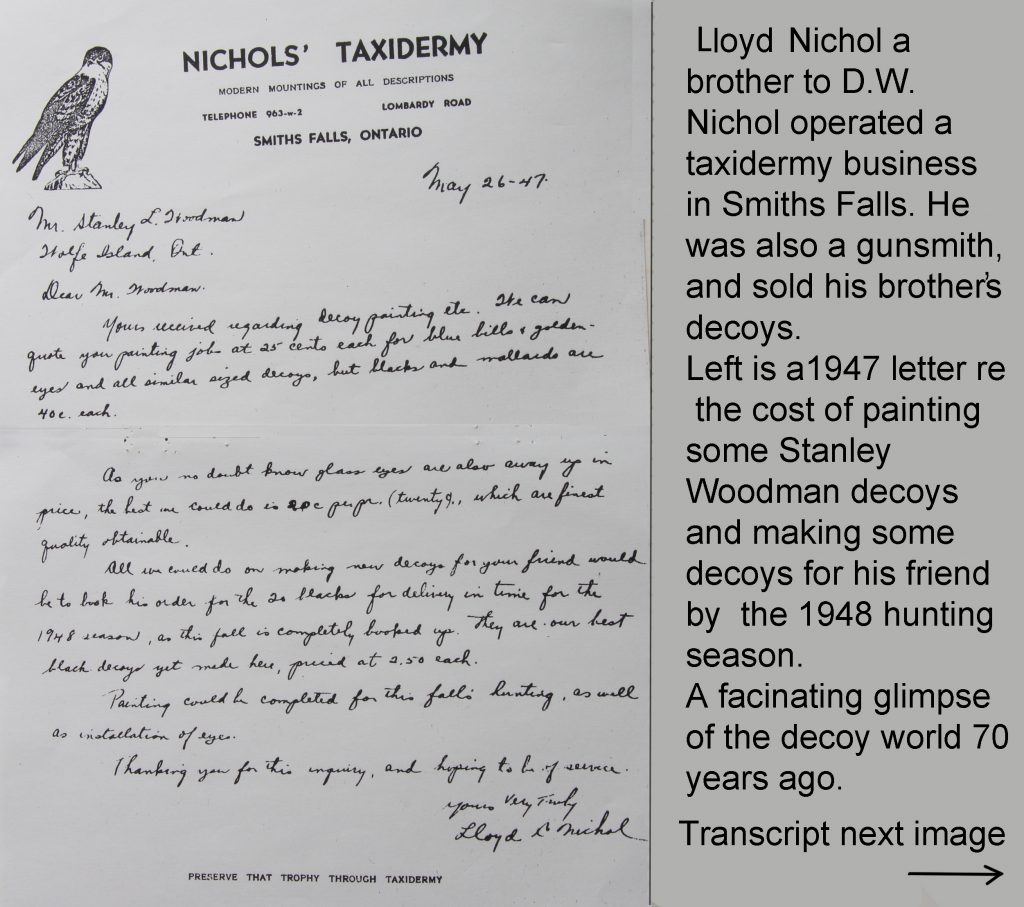 NICHOLS' TAXIDERMY
MODERN MOUNTINGS OF ALL DESCRIPTIONS
TELEPHONE 963-w-2 LOMBARDY ROAD
SMITHS FALLS, ONTARIO
May 26-47.
Mr. Stanley L. Woodman
Wolfe Island, Ont.
Dear Mr. Woodman.
Yours received regarding decoy painting etc. We can
quote you painting jobs at 25 cents each for blue bills & golden-
eyes and all similar sized decoys, but blacks and mallards are
40c. each.
As you no doubt know glass eyes are also away up in
price, the best we could do is 20c per pr. (twenty)., which are finest
quality obtainable.
All we could do on making new decoys for your friend would
be to book his order for the 20 blacks for delivery in time for the
1948 season, as this fall is completely booked up. They are our best
black decoys yet made here, priced at 2.50 each.
Painting could be completed for this fall's hunting, as well
as installation of eyes.
Thanking you for this inquiry, and hoping to be of service.
Yours Very Truly
Lloyd C Nichol
PRESERVE THAT TROPHY THROUGH TAXIDERMY
Lloyd Nichol a
brother to D.W.
Nichol operated a
taxidermy business
in Smiths Falls. He
was also a gunsmith,
and sold his brother's
decoys.
Left is a1947 letter re
the cost of painting
some Stanley
Woodman decoys
and making some
decoys for his friend
by the 1948 hunting
season.
A facinating glimpse
of the decoy world 70
years ago.
Transcript next image